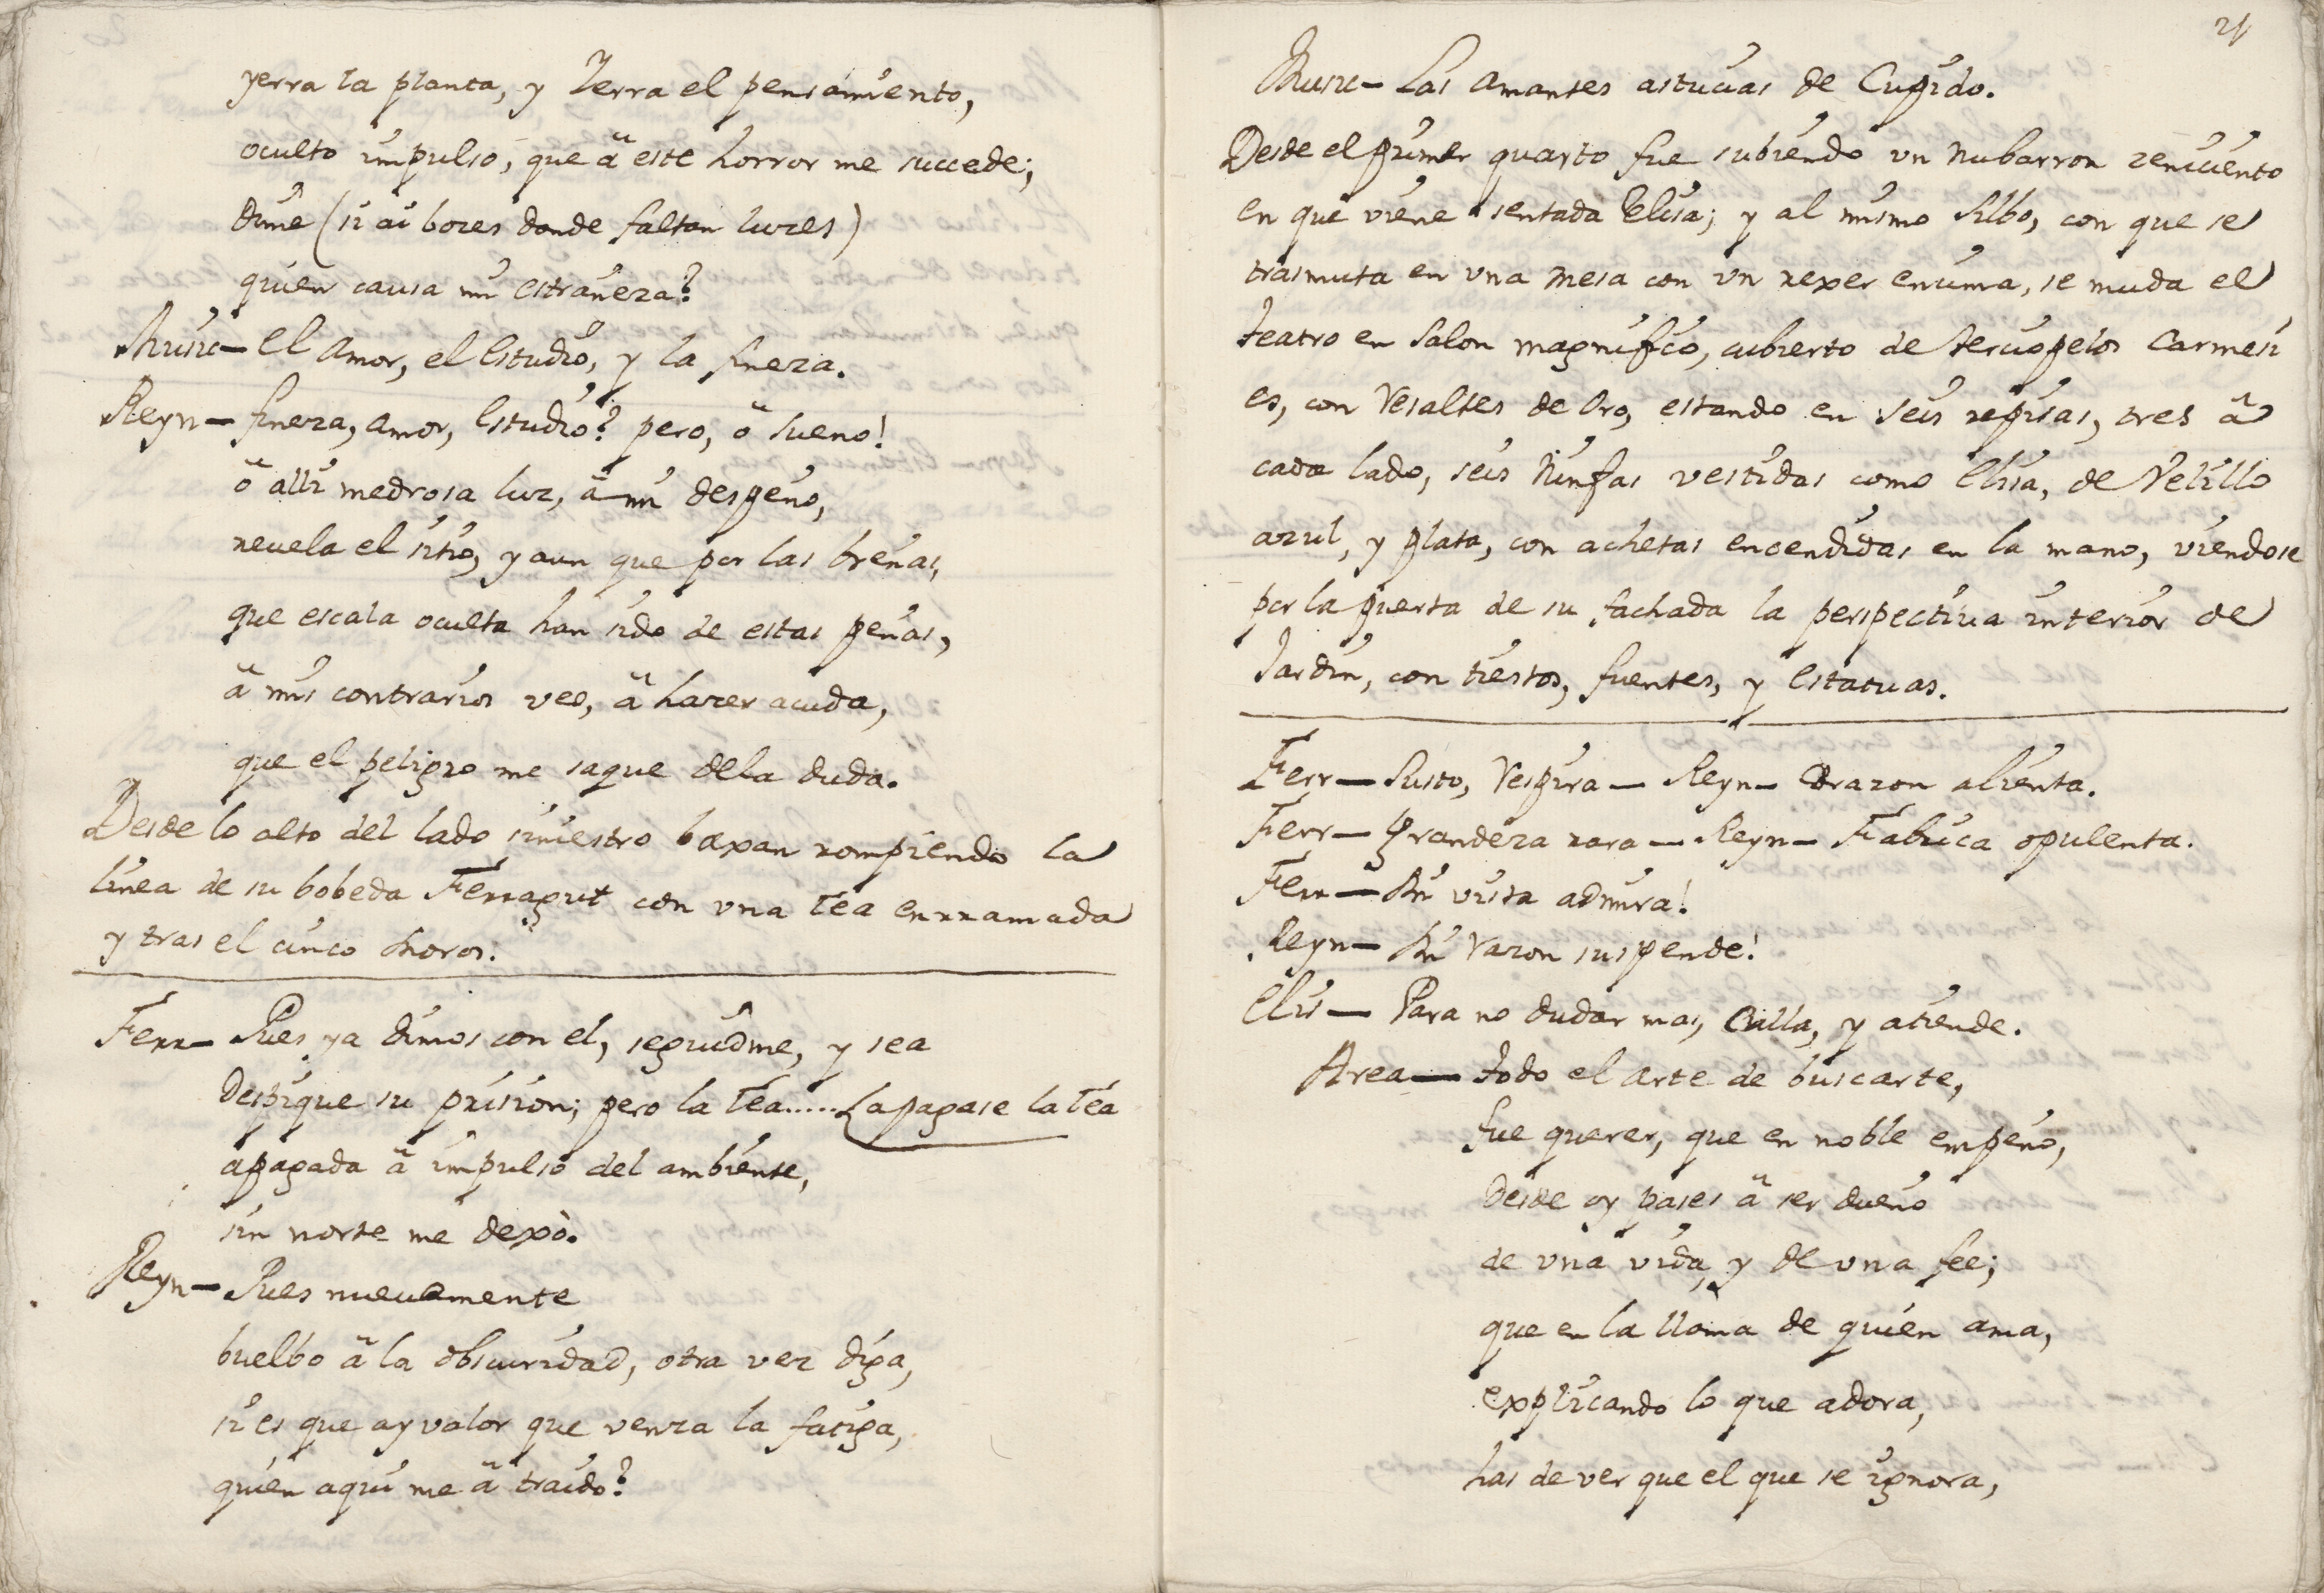 yerra la planta, y Yerra el pensamiento,
oculto impulso, que â este horror me succede;
dime (si ai bozes donde faltan luzes)
quien causa mi estrañeza?
Music— El Amor, el Estudio, y la fineza.
Reyn— fineza, amor, Estudio? pero, ô sueno!
ô alli medrosa luz, â mi despeño,
revela el sitio, y aun que por las breñas,
que escala oculta han sido de estas peñas,
â mis contrarios veo, â hazer acuda,
que el peligro me saque dela duda.
Desde lo alto del lado siniestro baxan rompiendo la
linea de su bobeda Ferragut con una Tea enrramada
y tras el cinco Moros.
Ferr— Pues ya dimos con el, seguidme, y sea
Despique su prision; pero la Tea..... apagase la Tea
apagada â impulso del ambiente,
sin norte me dexò.
Reyn— Pues nuevamente
buelbo â la obscuridad, otra vez diga,
si es que ay valor que venza la fatiga,
quien aqui me â traido?
21
Music— Las Amantes astucias de Cupido.
Desde el primer quarto fue subiendo un Nubarron zeniciento
en que viene sentada Elisa; y al mismo silbo, con que se
trasmuta en una Mesa con un rexer encima, se muda el
teatro en Salon magnifico, cubierto de terciopelos Carmesi
es, con Resaltes de Oro, estando en seis repisas, tres â
cada lado, seis Ninfas vestidas como Elisa, de Velillo
azul, y plata, con achetas encendidas en la mano, viendose
por la puerta de su fachada la perspectiva interior de
Jardin, con tiestos, fuentes, y Estatuas.
Ferr— Susto, Respira— Reyn— Corazon alienta.
Ferr— Grandeza rara— Reyn— Fabrica opulenta.
Ferr— Mi vista admira!
Reyn— Mi Razon suspende!
Elis— Para no dudar mas, Calla, y atiende.
Area— Todo el arte de buscarte,
fue querer, que en noble empeño,
Desde oy pases â ser dueño
de una vida, y de una fee;
que en la llama de quien ama,
explicando lo que adora,
has de ver que el que se ignora,